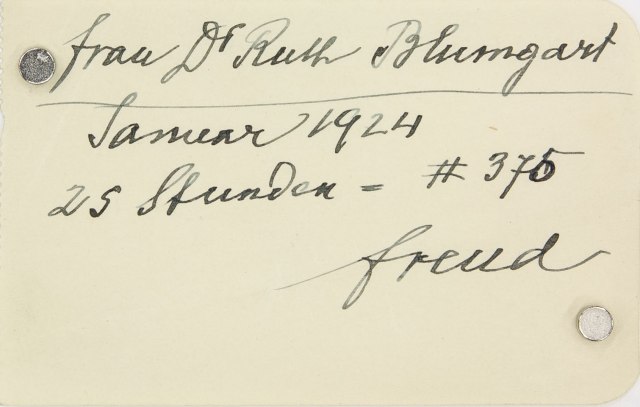 Frau Dr Ruth Blumgart
Januar 1924
25 Stunden = # 375
Freud